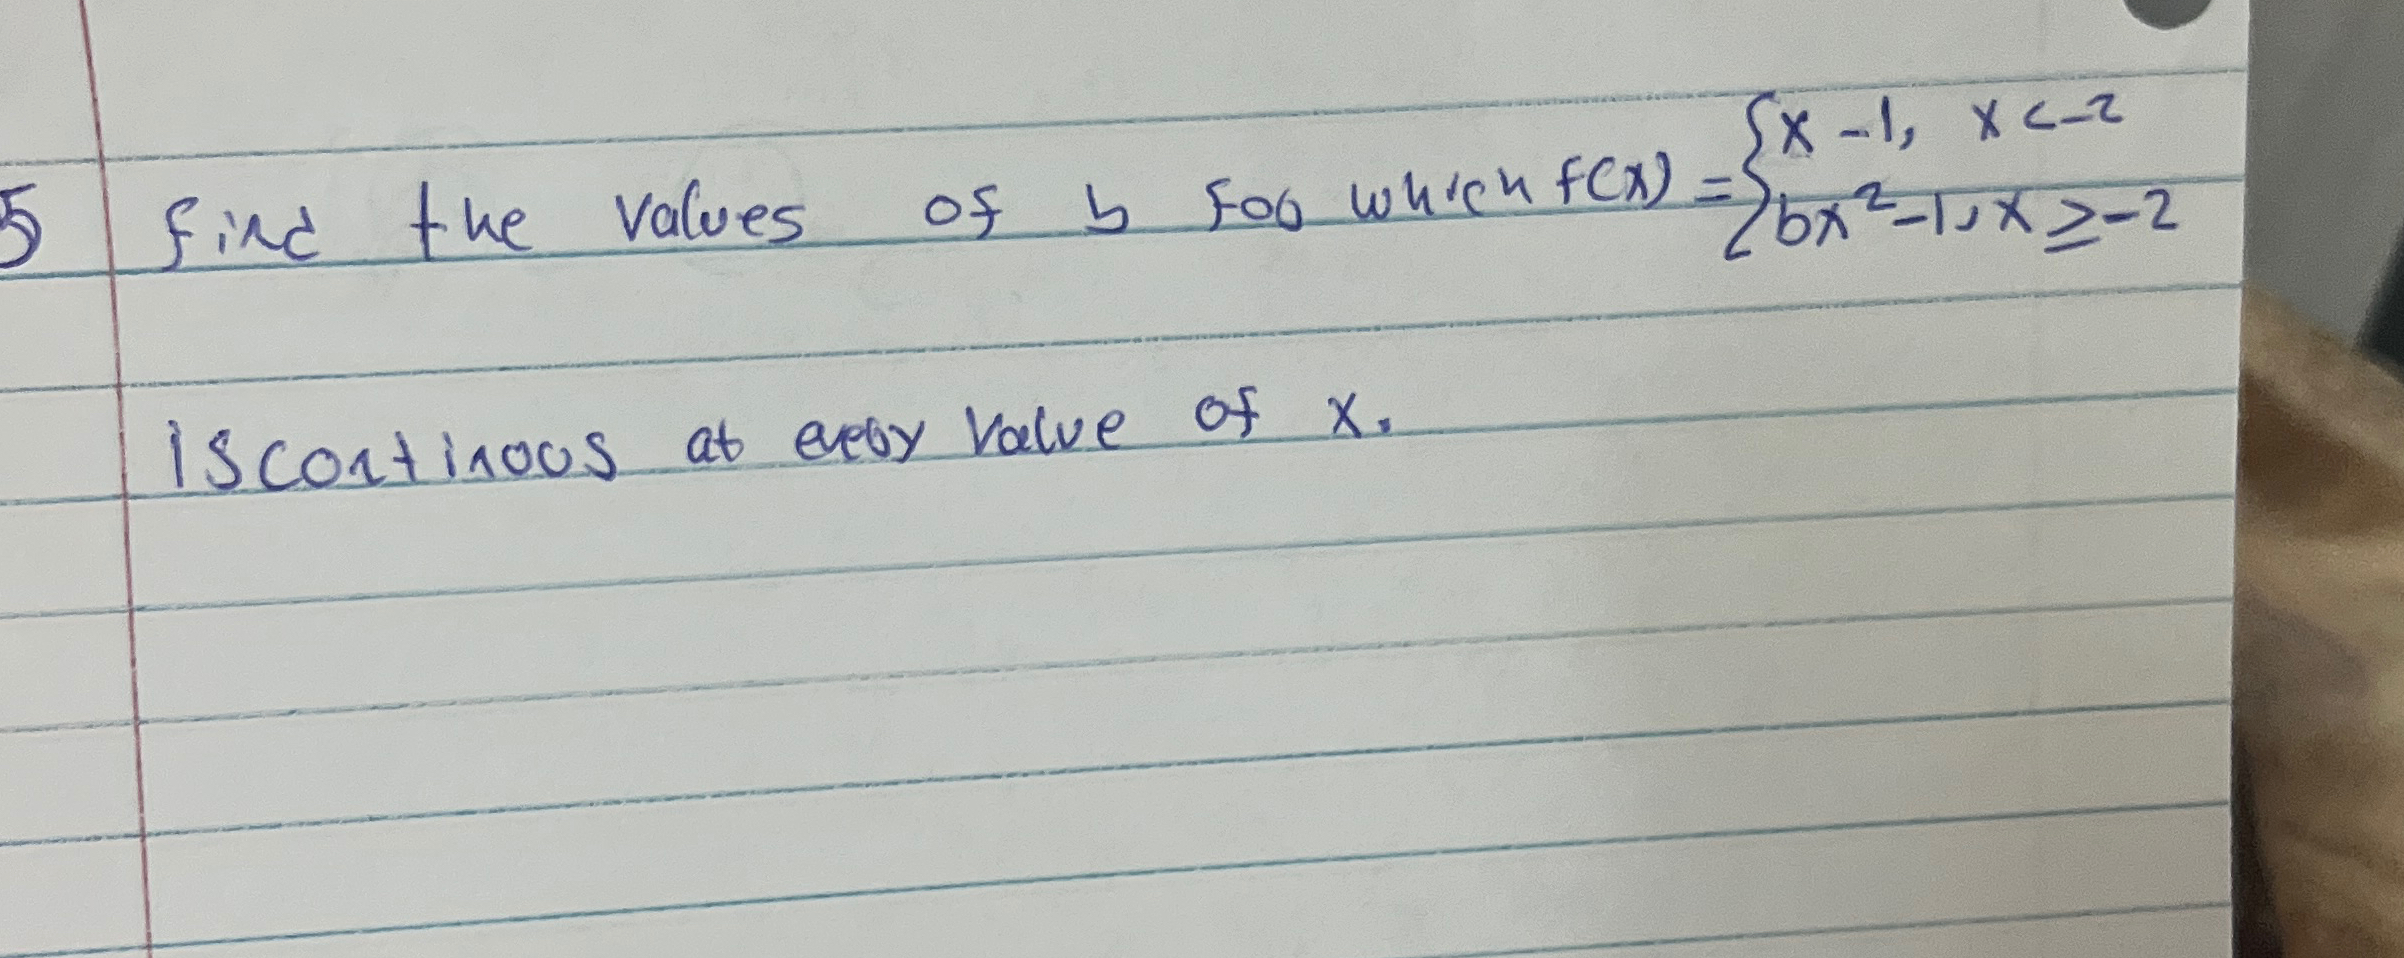 5 find the values of b foo which f(x) = { x - 1, x < -2
bx² - 1, x ≥ -2
is continoos at eveoy value of x.